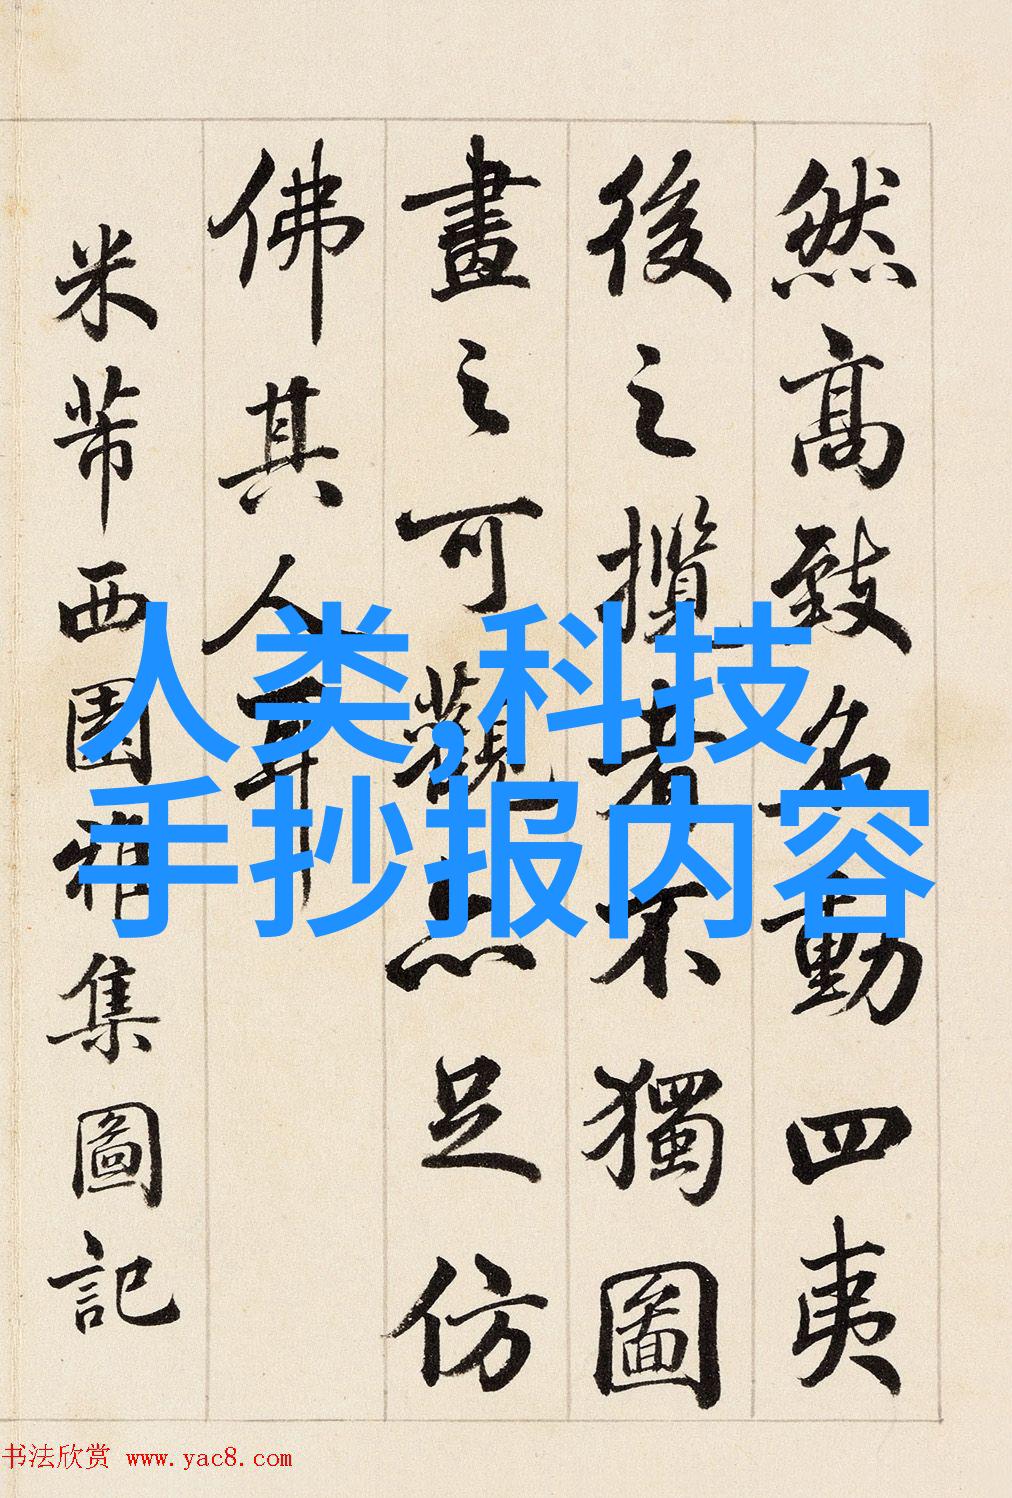 然高致名動四夷
後之攬者不獨圖
畫之可觀亦足仿
佛其人耳
米芾西園雅集圖記
人类,科技
手抄报内容
书法欣赏 www.yac8.com